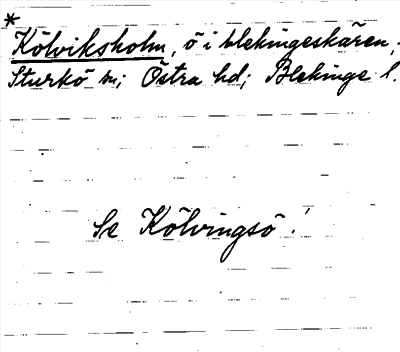 *
Kölviksholm, ö i blekingeskären;
Sturkö sn; Östra hd; Blekinge l.
Se Kölvingsö!